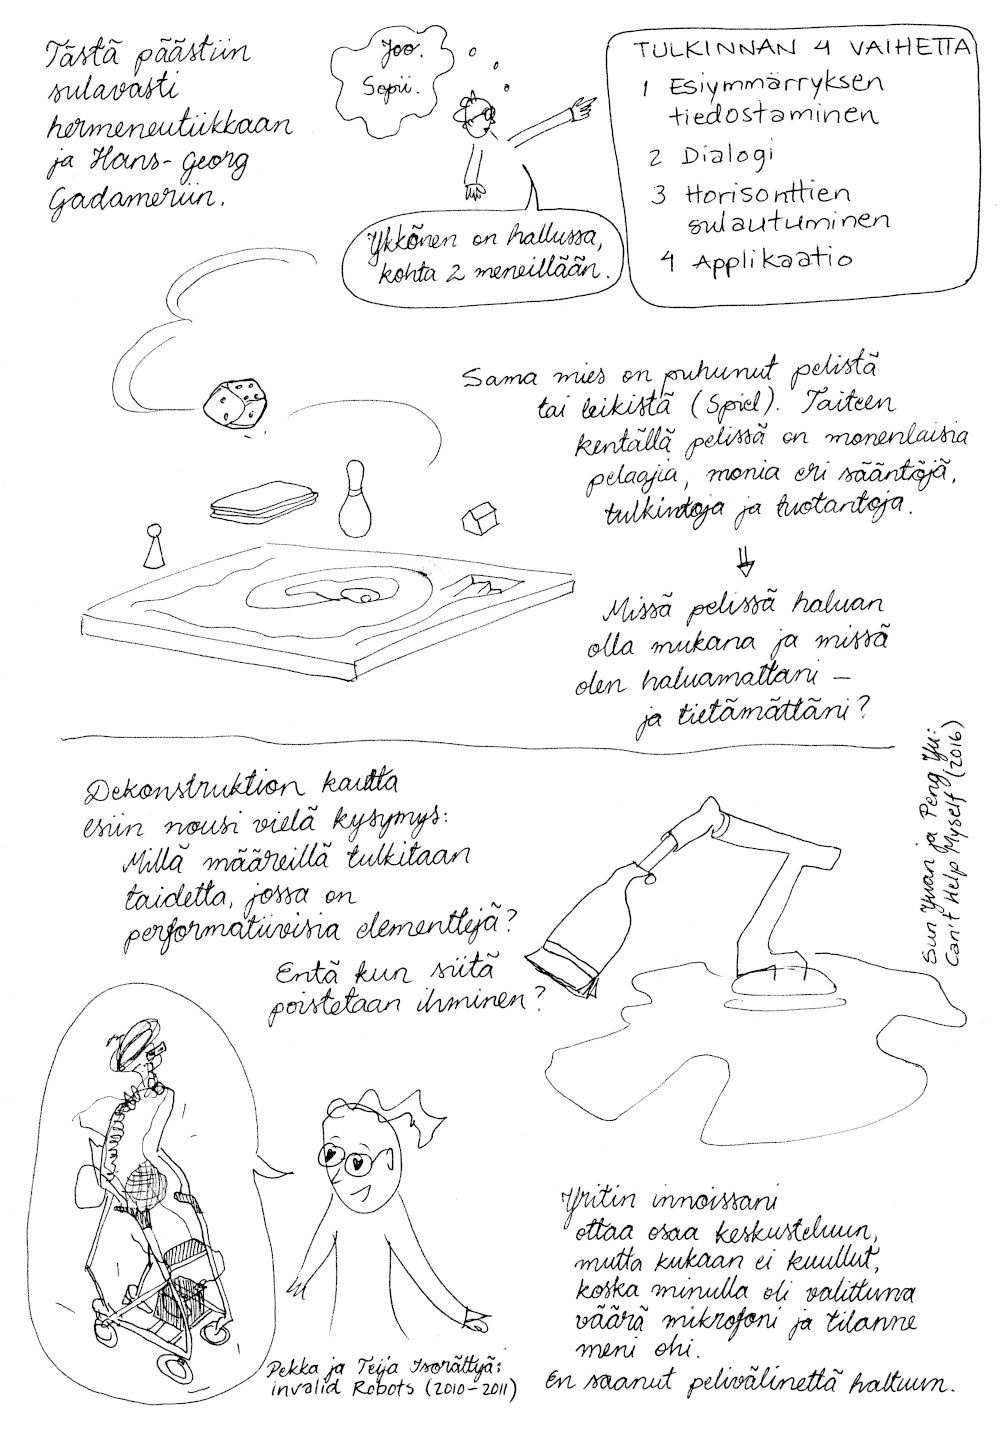 Tästä päästiin
sulavasti
hermeneutiikkaan
ja Hans-Georg
Gadameriin.
Joo.
Sopii.
Ykkönen on hallussa,
kohta 2 meneillään.
TULKINNAN 4 VAIHETTA
1 Esiymmärryksen
tiedostaminen
2 Dialogi
3 Horisonttien
sulautuminen
4 Applikaatio
Sama mies on puhunut pelistä
tai leikistä (Spiel). Taiteen
kentällä pelissä on monenlaisia
pelaajia, monia eri sääntöjä,
tulkintoja ja tuotantoja.
Missä pelissä haluan
olla mukana ja missä
olen haluamattani –
ja tietämättäni?
Dekonstruktion kautta
esiin nousi vielä kysymys:
Millä määreillä tulkitaan
taidetta, jossa on
performatiivisia elementtejä?
Entä kun siitä
poistetaan ihminen?
Sun Yuan ja Peng Yu:
Can't Help Myself (2016)
Pekka ja Teija Isorättyä:
invalid Robots (2010–2011)
Yritin innoissani
ottaa osaa keskusteluun,
mutta kukaan ei kuullut,
koska minulla oli valittuna
väärä mikrofoni ja tilanne
meni ohi.
En saanut pelivälinettä haltuun.